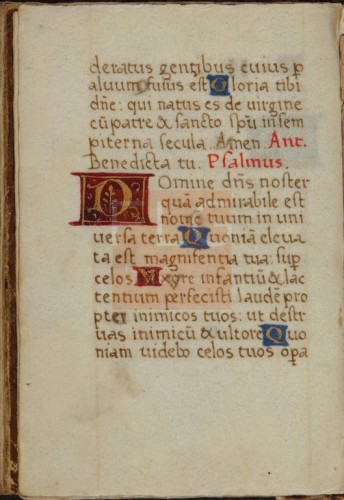 deratus gentibus cuius p
aluum fusus est Gloria tibi
dñe: qui natus es de uirgine
cũ patre & sancto spũ in sem
piterna secula. Amen. Ant.
Benedicta tu. Psalmus.
Domine dñs noster
quã admirabile est
nomẽ tuum in uni
uersa terra Quoniã eleua
ta est magnifentia tua: sup
celos. Ex ore infantiũ & lac
tentium perfecisti laudẽ pro
pter inimicos tuos: ut destr
uas inimicũ & ultorẽ Quo
niam uidebo celos tuos opa